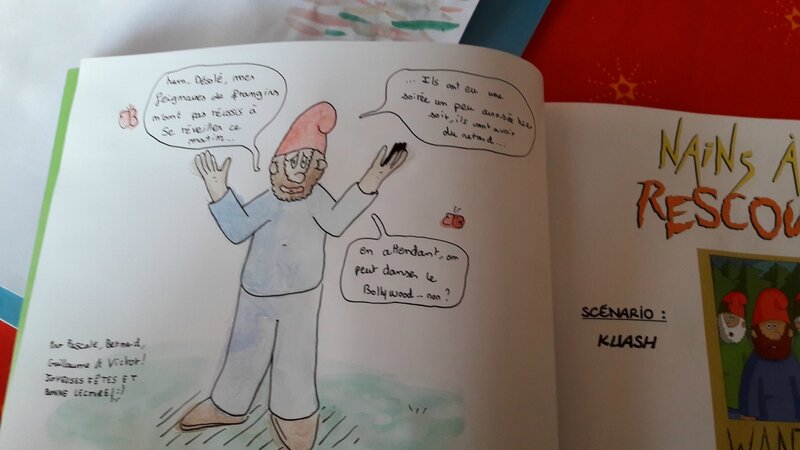 hum... Désolé, mes
feignasses de frangins
n'ont pas réussis à
se réveiller ce
matin...
... Ils ont eu une
soirée un peu arrosée hier
soir, ils vont avoir
du retard...
en attendant, on
peut danser le
Bollywood... non ?
Par Pascale, Bernard,
Guillaume & Victor!
JOYEUSES FÊTES ET
BONNE LECTURE! :)
NAINS À
RESCOU
SCÉNARIO :
KLIASH
WANT